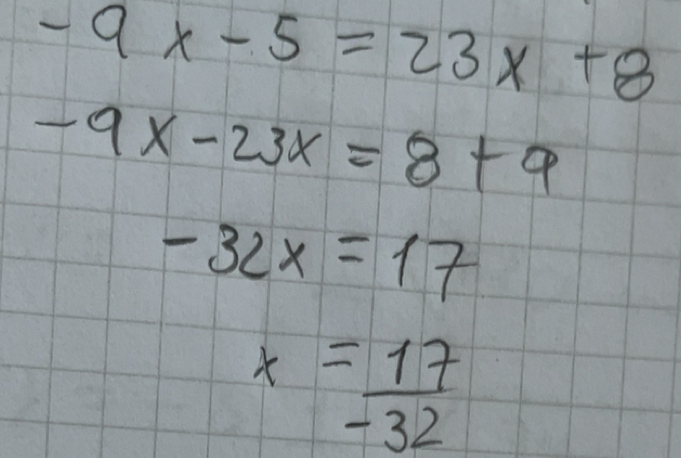 -9x-5=23x+8
-9x-23x=8+9
-32x=17
x=17/-32